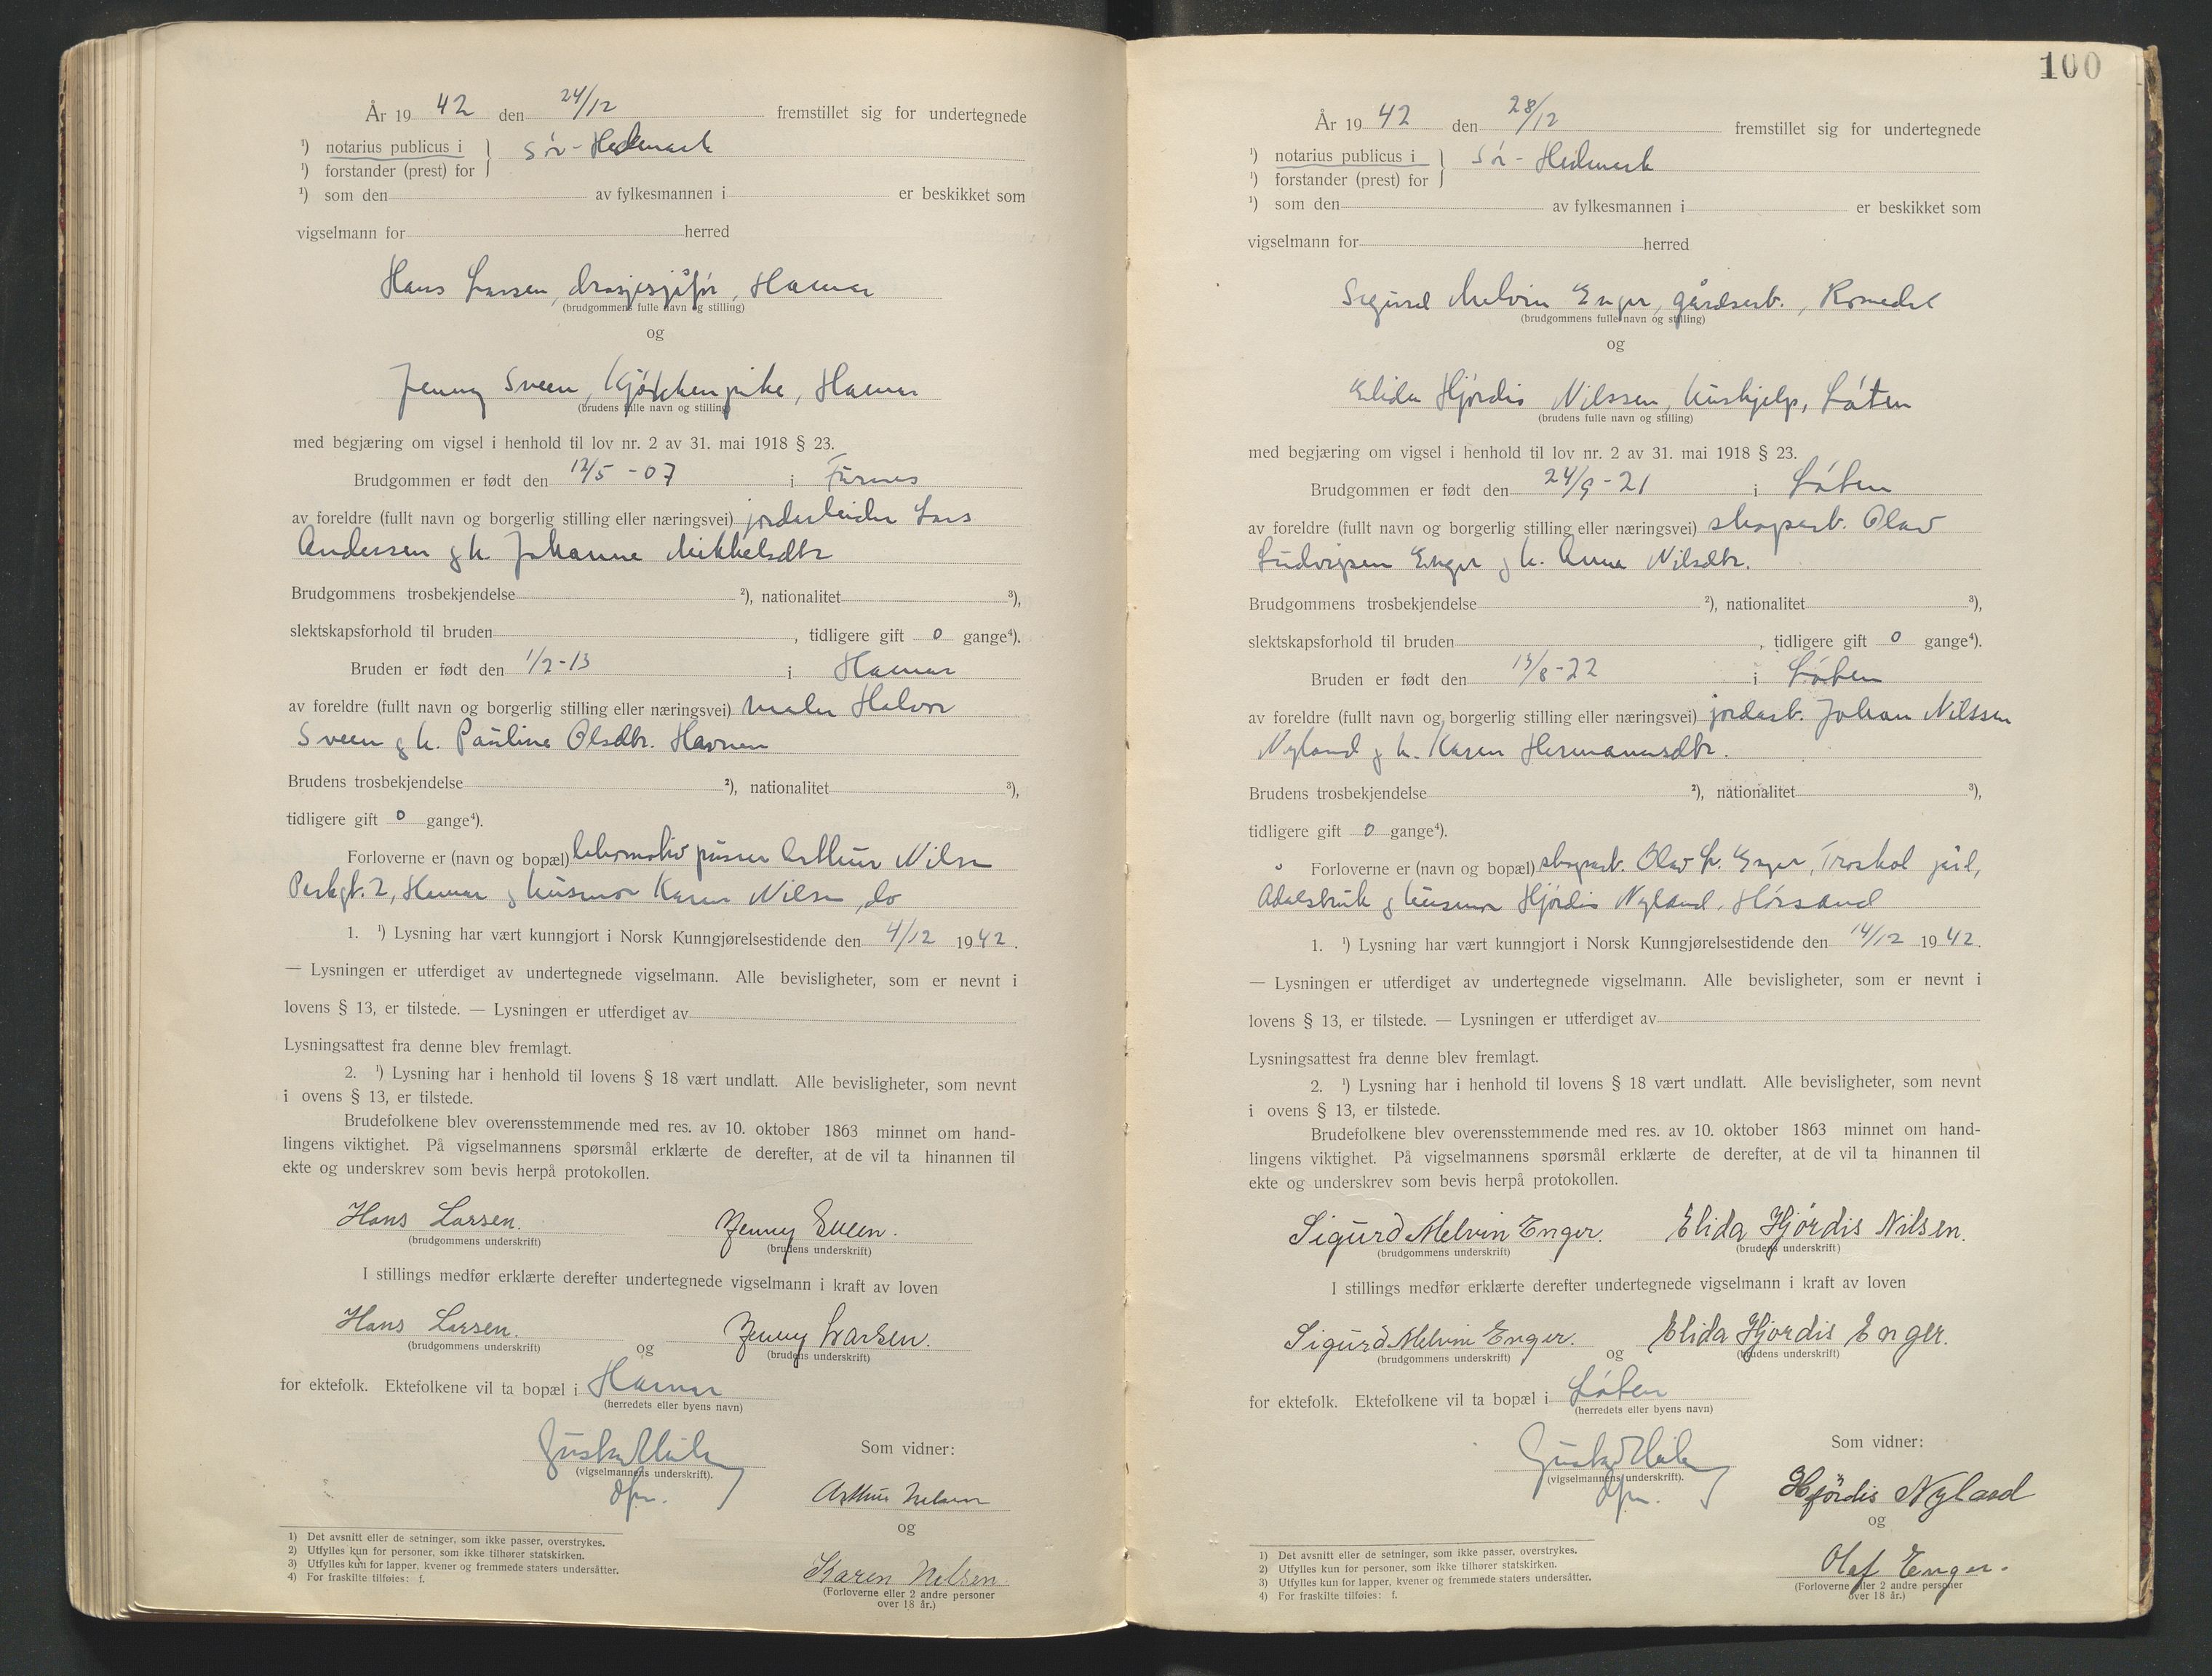 År 19 42 den 24/12 fremstillet sig for undertegnede
¹) notarius publicus i } Sør-Hedmark
¹) forstander (prest) for
¹) som den av fylkesmannen i er beskikket som
vigselmann for herred
Hans Larsen, drosjesjåfør, Hamar
(brudgommens fulle navn og stilling)
og
Jenny Sveen, kjøkkenpike, Hamar
(brudens fulle navn og stilling)
med begjæring om vigsel i henhold til lov nr. 2 av 31. mai 1918 § 23.
Brudgommen er født den 12/5 - 07 i Furnes
av foreldre (fullt navn og borgerlig stilling eller næringsvei) jordarbeider Lars
Andersen og h. Johanne Mikkelsdtr
Brudgommens trosbekjendelse ²), nationalitet ³),
slektskapsforhold til bruden , tidligere gift 0 gange⁴).
Bruden er født den 1/2-13 i Hamar
av foreldre (fullt navn og borgerlig stilling eller næringsvei) maler Halvor
Sveen og h. Pauline Olsdtr. Havnen
Brudens trosbekjendelse ²), nationalitet ³),
tidligere gift 0 gange⁴).
Forloverne er (navn og bopæl) lokomotivpusser Arthur Nilsen
Parkgt. 2, Hamar og husmor Karen Nilsen, do
1. ¹) Lysning har vært kunngjort i Norsk Kunngjørelsestidende den 4/12 1942.
— Lysningen er utferdiget av undertegnede vigselmann. Alle bevisligheter, som er nevnt i
lovens § 13, er tilstede. — Lysningen er utferdiget av
Lysningsattest fra denne blev fremlagt.
2. ¹) Lysning har i henhold til lovens § 18 vært undlatt. Alle bevisligheter, som nevnt
i ovens § 13, er tilstede.
Brudefolkene blev overensstemmende med res. av 10. oktober 1863 minnet om hand-
lingens viktighet. På vigselmannens spørsmål erklærte de derefter, at de vil ta hinannen til
ekte og underskrev som bevis herpå protokollen.
Hans Larsen. Jenny Sveen.
(brudgommens underskrift) (brudens underskrift)
I stillings medfør erklærte derefter undertegnede vigselmann i kraft av loven
Hans Larsen. og Jenny Larsen.
(brudgommens underskrift) (brudens underskrift)
for ektefolk. Ektefolkene vil ta bopæl i Hamar
(herredets eller byens navn)
Som vidner:
(vigselmannens underskrift).
Arthur Nilsen
og
Karen Nilsen.
(Forloverne eller 2 andre personer
over 18 år.)
1) Det avsnitt eller de setninger, som ikke passer, overstrykes.
2) Utfylles kun for personer, som ikke tilhører statskirken.
3) Utfylles kun for lapper, kvener og fremmede staters undersåtter.
4) For fraskilte tilføies: f.
100
År 19 42 den 28/12 fremstillet sig for undertegnede
¹) notarius publicus i } Sør-Hedmark
¹) forstander (prest) for
¹) som den av fylkesmannen i er beskikket som
vigselmann for herred
Sigurd Melvin Enger, gårdsarb., Romedal
(brudgommens fulle navn og stilling)
og
Elida Hjørdis Nilssen, hushjelp, Løten
(brudens fulle navn og stilling)
med begjæring om vigsel i henhold til lov nr. 2 av 31. mai 1918 § 23.
Brudgommen er født den 24/9-21 i Løten
av foreldre (fullt navn og borgerlig stilling eller næringsvei) skogsarb. Olav
Ludvigsen Enger og h. Anna Nilsdtr.
Brudgommens trosbekjendelse ²), nationalitet ³),
slektskapsforhold til bruden , tidligere gift 0 gange⁴).
Bruden er født den 13/8-22 i Løten
av foreldre (fullt navn og borgerlig stilling eller næringsvei) jordarb. Johan Nilssen
Nyland og h. Karen Hermannsdtr.
Brudens trosbekjendelse ²), nationalitet ³),
tidligere gift 0 gange⁴).
Forloverne er (navn og bopæl) skogsarb. Olav L. Enger,
Ådalsbruk og husmor Hjørdis Nyland, Hørsand
1. ¹) Lysning har vært kunngjort i Norsk Kunngjørelsestidende den 14/12 1942.
— Lysningen er utferdiget av undertegnede vigselmann. Alle bevisligheter, som er nevnt i
lovens § 13, er tilstede. — Lysningen er utferdiget av
Lysningsattest fra denne blev fremlagt.
2. ¹) Lysning har i henhold til lovens § 18 vært undlatt. Alle bevisligheter, som nevnt
i ovens § 13, er tilstede.
Brudefolkene blev overensstemmende med res. av 10. oktober 1863 minnet om hand-
lingens viktighet. På vigselmannens spørsmål erklærte de derefter, at de vil ta hinannen til
ekte og underskrev som bevis herpå protokollen.
Sigurd Melvin Enger. Elida Hjørdis Nilsen.
(brudgommens underskrift) (brudens underskrift)
I stillings medfør erklærte derefter undertegnede vigselmann i kraft av loven
Sigurd Melvin Enger. og Elida Hjørdis Enger.
(brudgommens underskrift) (brudens underskrift)
for ektefolk. Ektefolkene vil ta bopæl i Løten
(herredets eller byens navn)
Som vidner:
(vigselmannens underskrift).
Hjørdis Nyland
og
Olaf Enger.
(Forloverne eller 2 andre personer
over 18 år.)
1) Det avsnitt eller de setninger, som ikke passer, overstrykes.
2) Utfylles kun for personer, som ikke tilhører statskirken.
3) Utfylles kun for lapper, kvener og fremmede staters undersåtter.
4) For fraskilte tilføies: f.